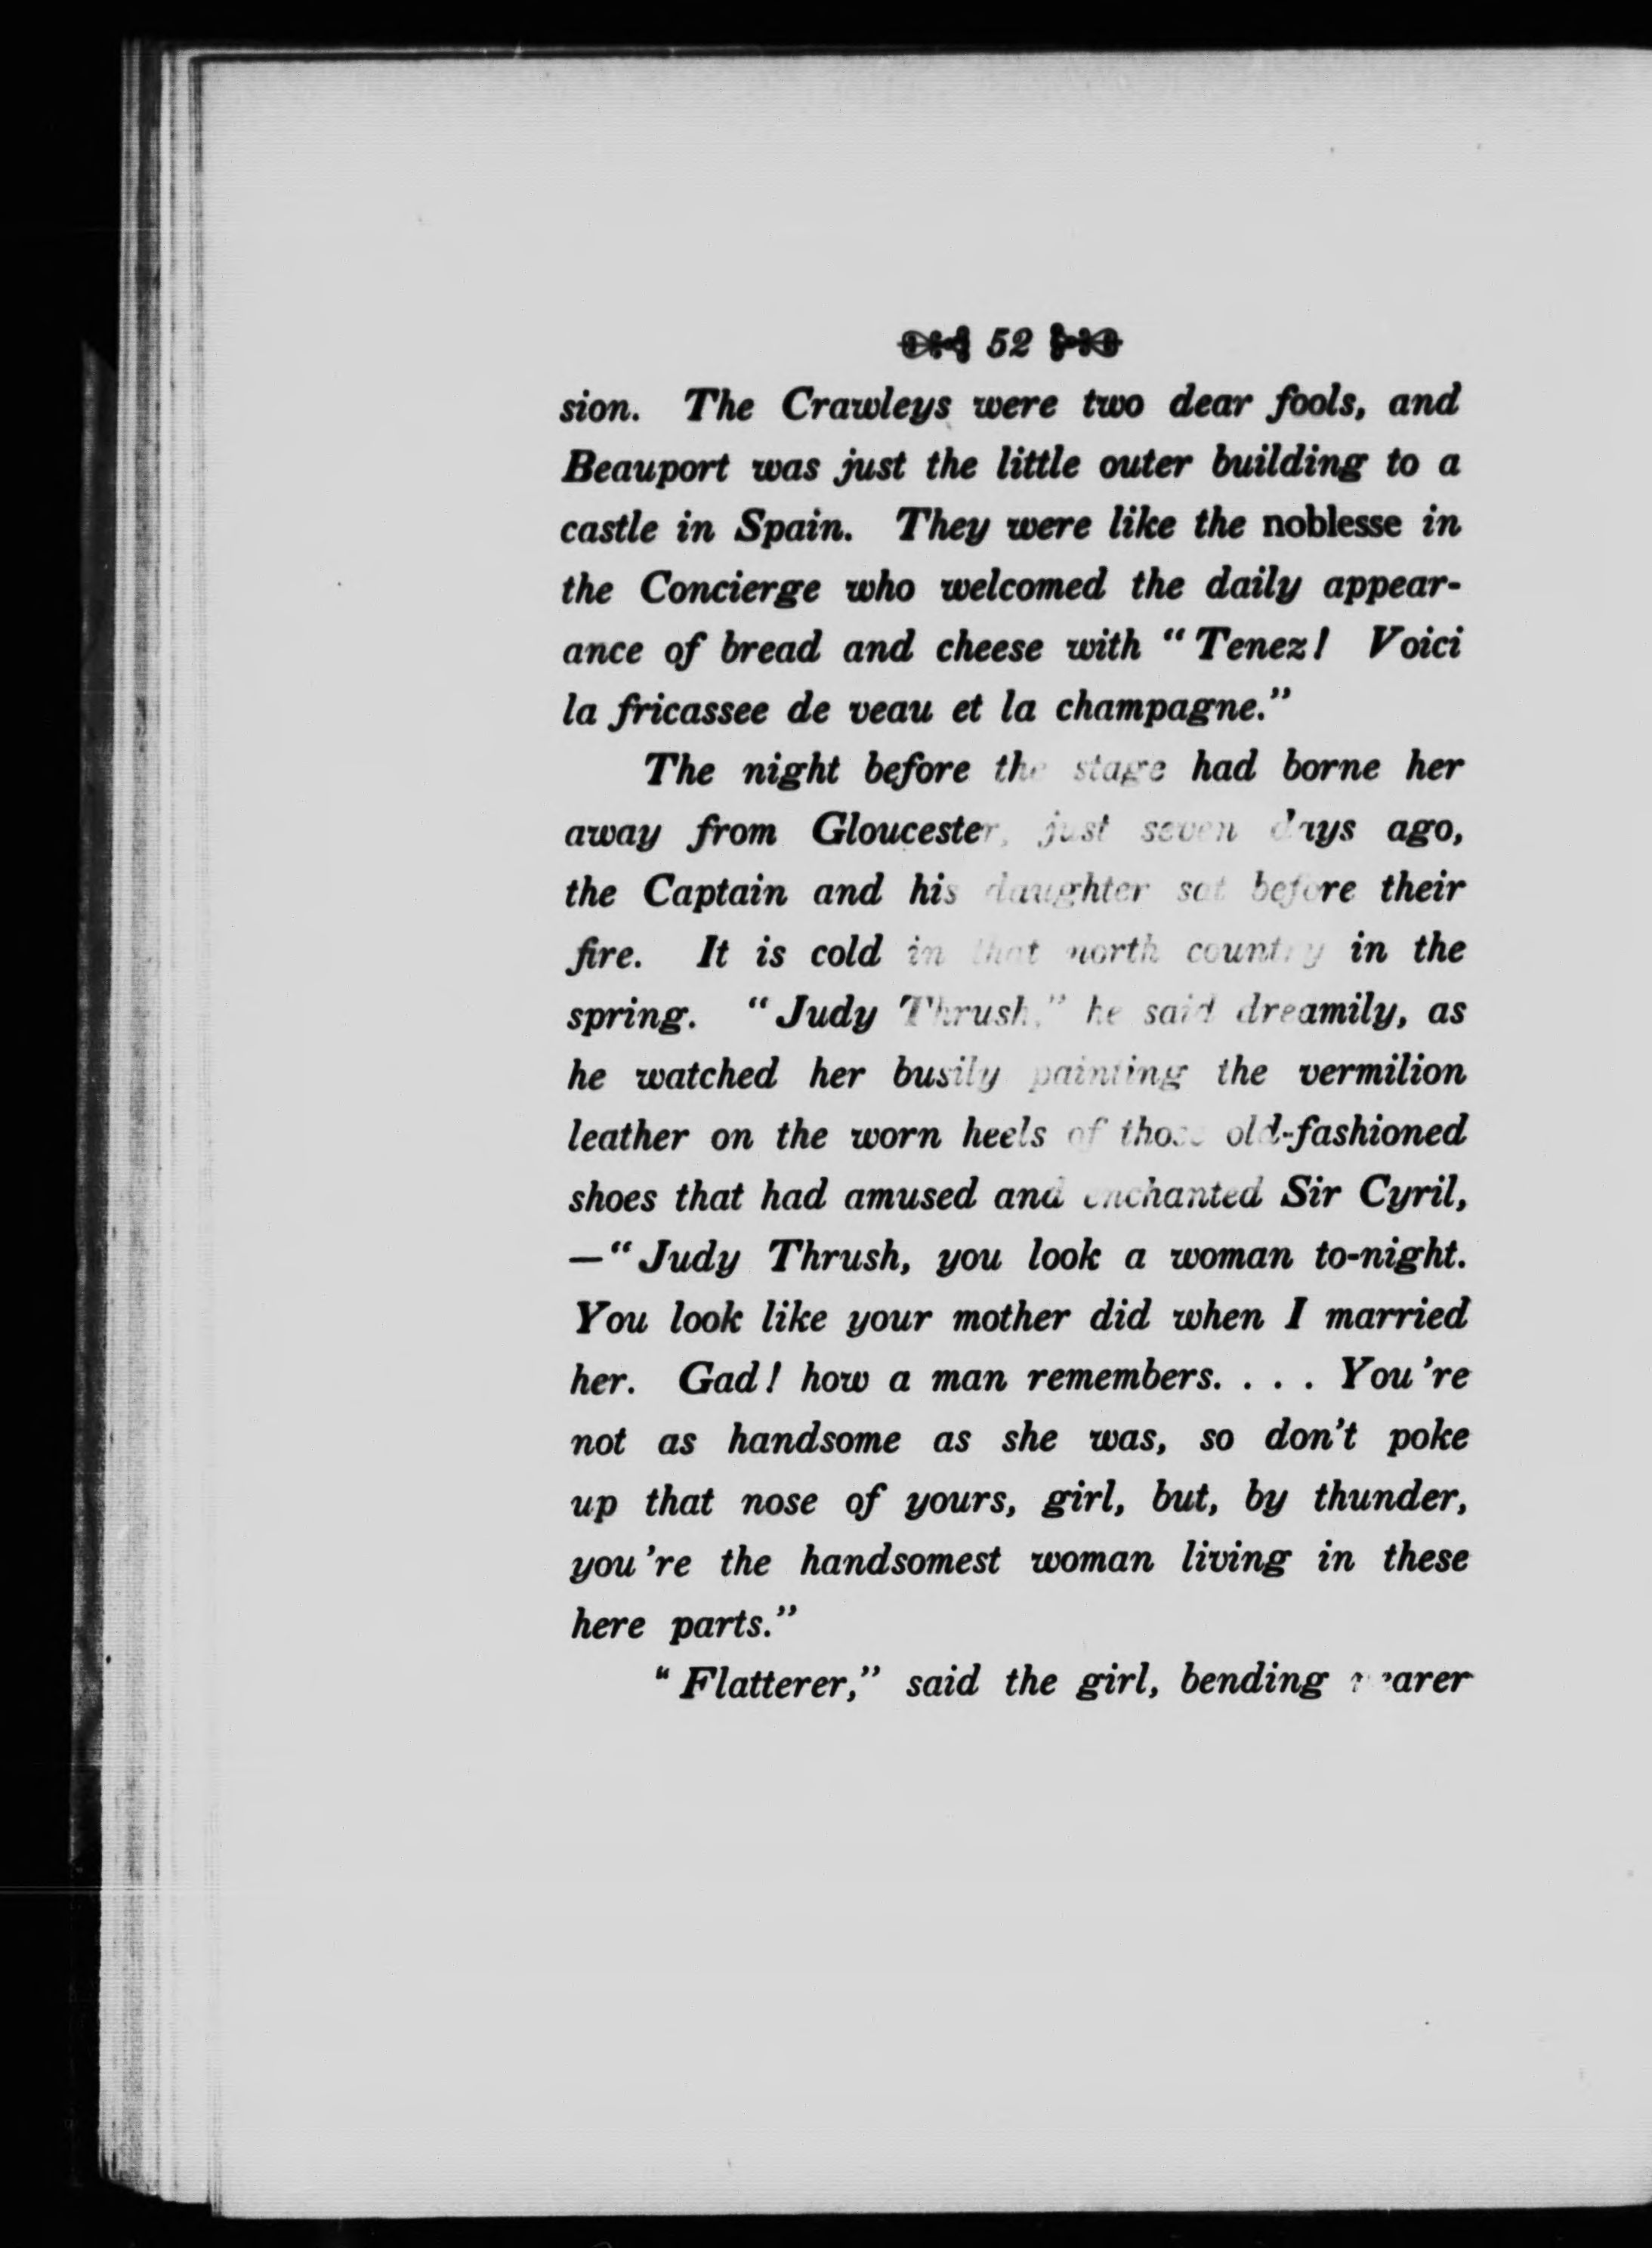 52
sion. The Crawleys were two dear fools, and
Beauport was just the little outer building to a
castle in Spain. They were like the noblesse in
the Concierge who welcomed the daily appear-
ance of bread and cheese with “Tenez! Voici
la fricassee de veau et la champagne.”
The night before the stage had borne her
away from Gloucester, just seven days ago,
the Captain and his daughter sat before their
fire. It is cold in that north country in the
spring. “Judy Thrush,” he said dreamily, as
he watched her busily painting the vermilion
leather on the worn heels of those old-fashioned
shoes that had amused and enchanted Sir Cyril,
—“Judy Thrush, you look a woman to-night.
You look like your mother did when I married
her. Gad! how a man remembers. . . . You're
not as handsome as she was, so don't poke
up that nose of yours, girl, but, by thunder,
you're the handsomest woman living in these
here parts.”
“Flatterer,” said the girl, bending nearer